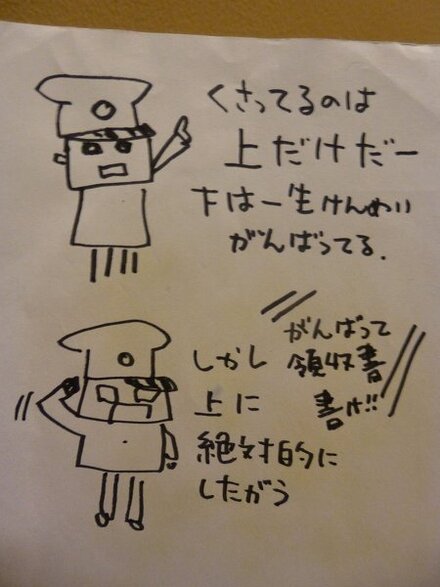 くさってるのは
上だけだー
下は一生けんめい
がんばってる.
がんばって
領収書
書け!!
しかし
上に
絶対的に
したがう